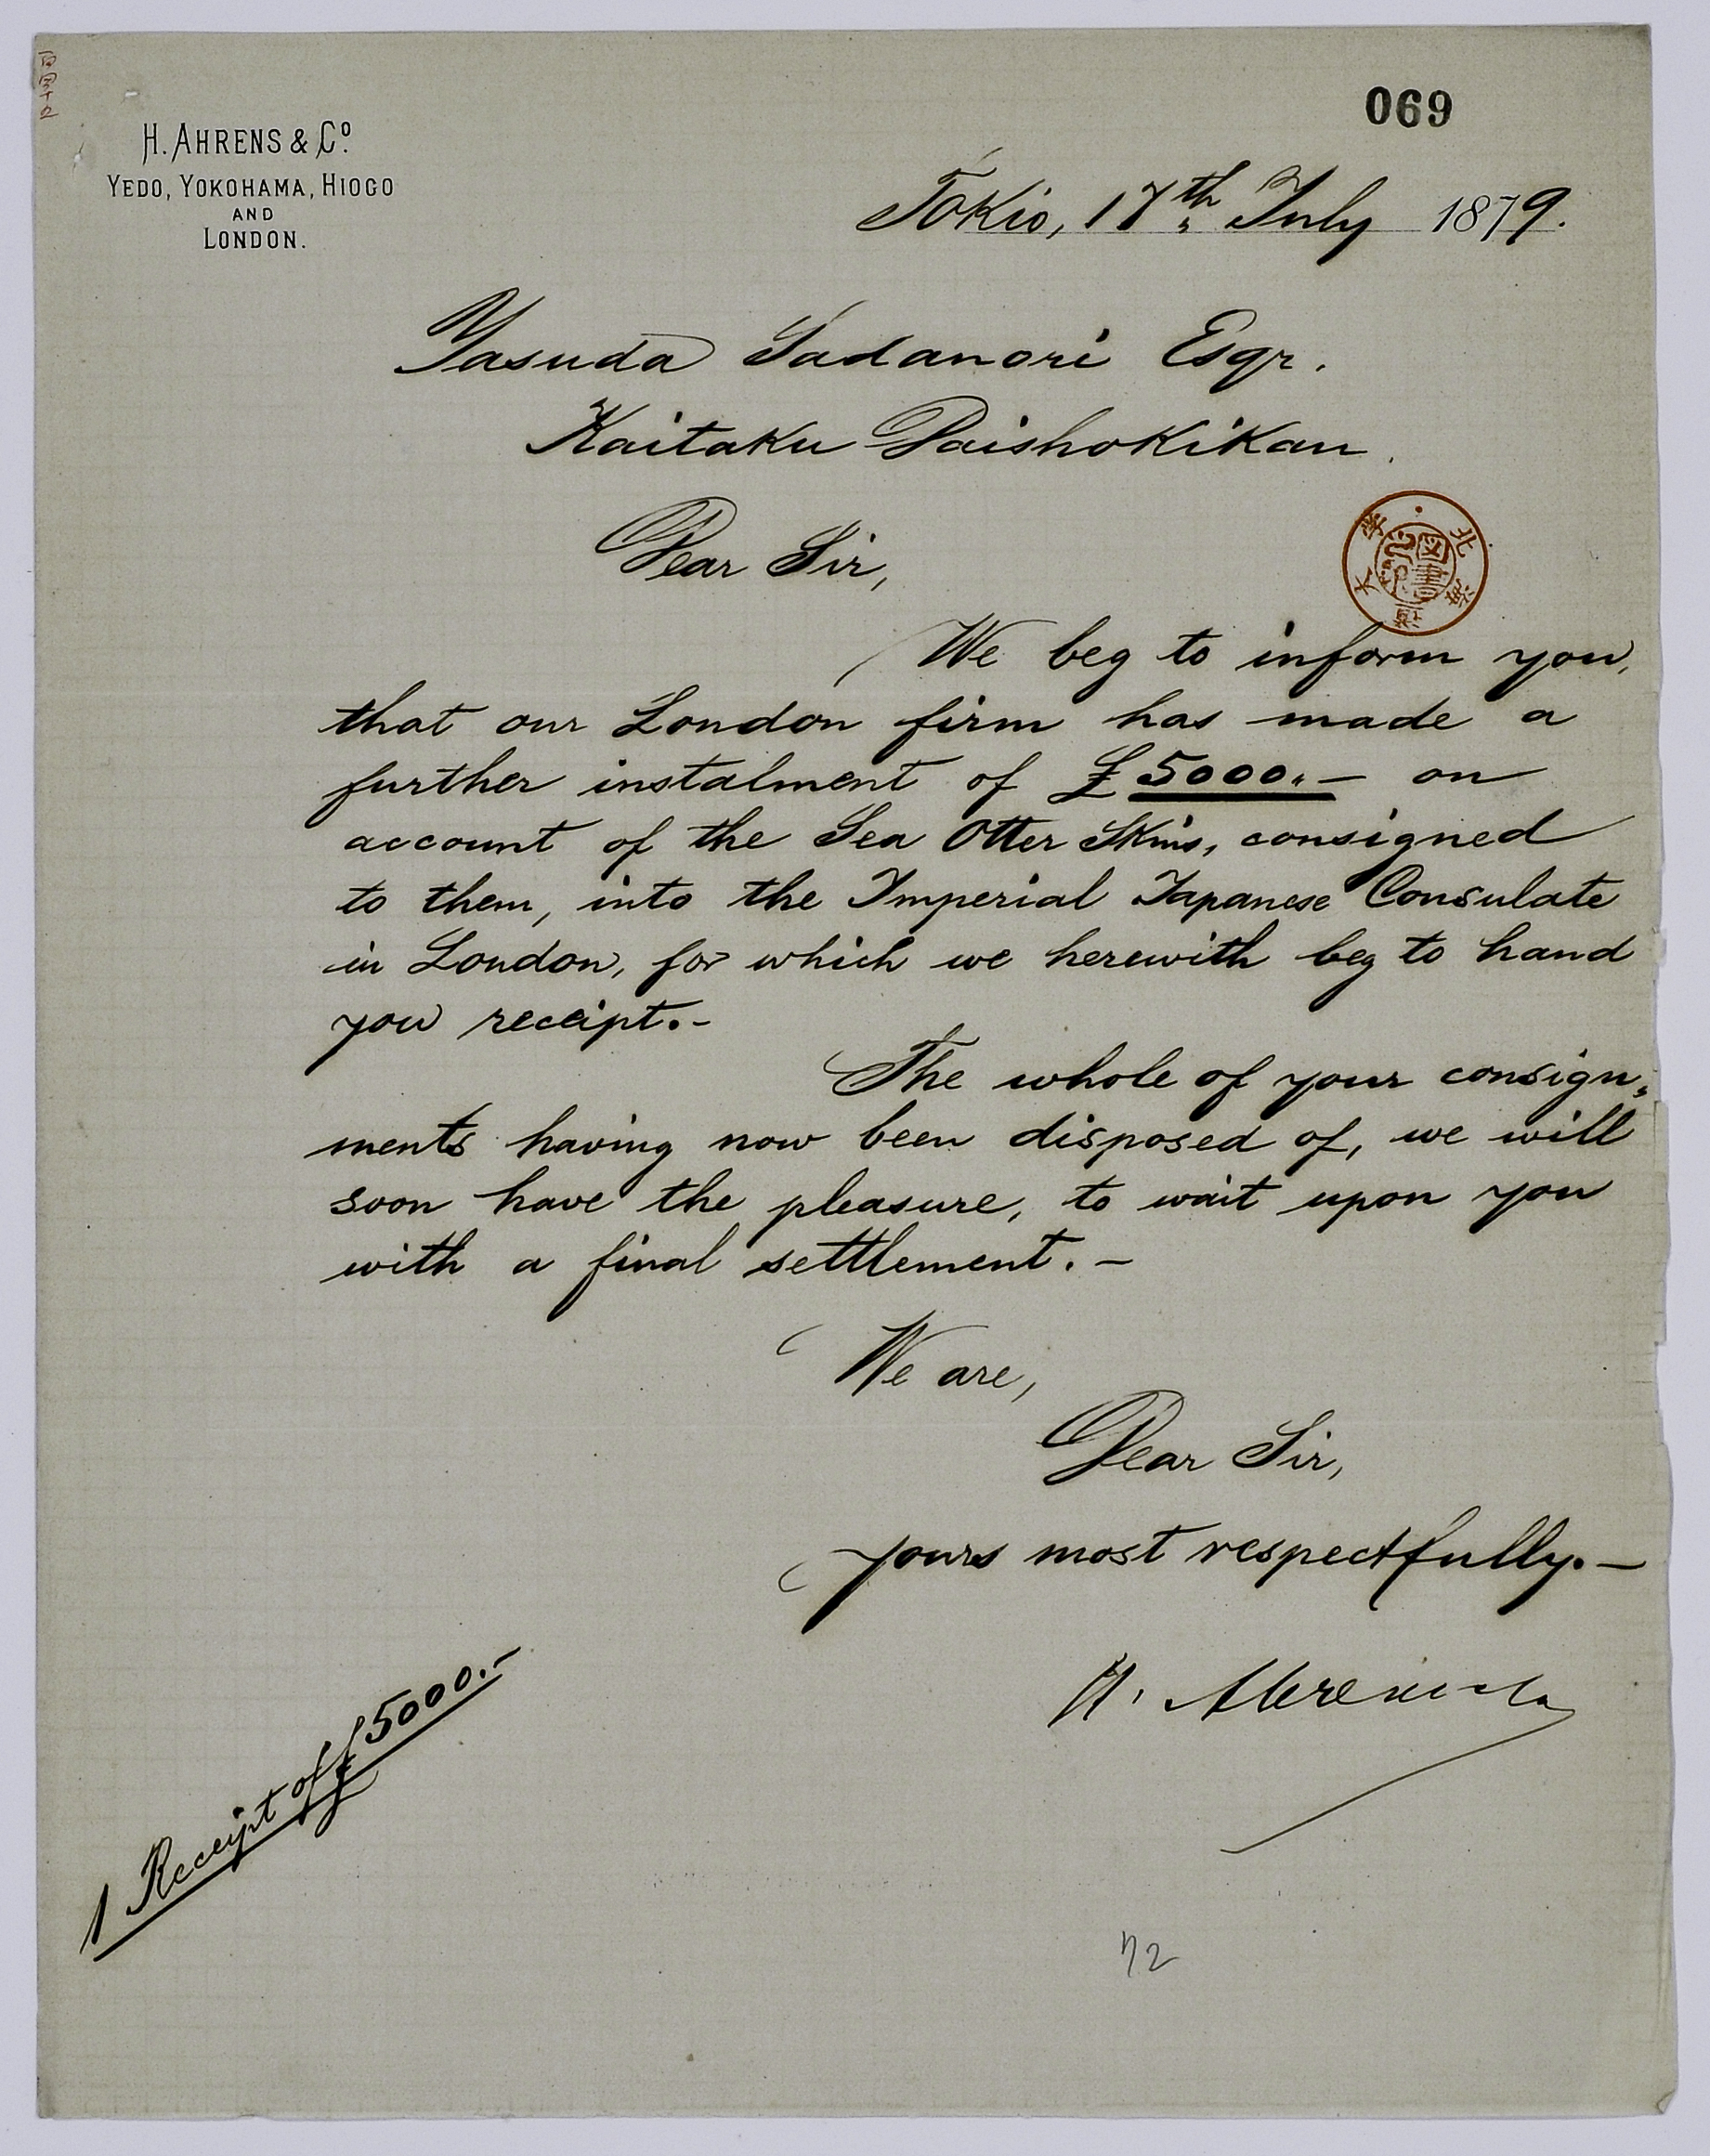 069
H. AHRENS & Co.
YEDO, YOKOHAMA, HIOGO
AND
LONDON.
Tokio, 17th July 1879.
Yasuda Sadanori Esqr.
Kaitaku Daishokikan.
Dear Sir,
We beg to inform you,
that our London firm has made a
further instalment of £5000.- on
account of the Sea Otter Skins, consigned
to them, into the Imperial Japanese Consulate
in London, for which we herewith beg to hand
you receipt.-
The whole of your consign-
ments having now been disposed of, we will
soon have the pleasure, to wait upon you
with a final settlement.-
We are,
Dear Sir,
yours most respectfully.-
H. Ahrens & Co
1 Receipt of £5000.-
72
北海道大学
図書